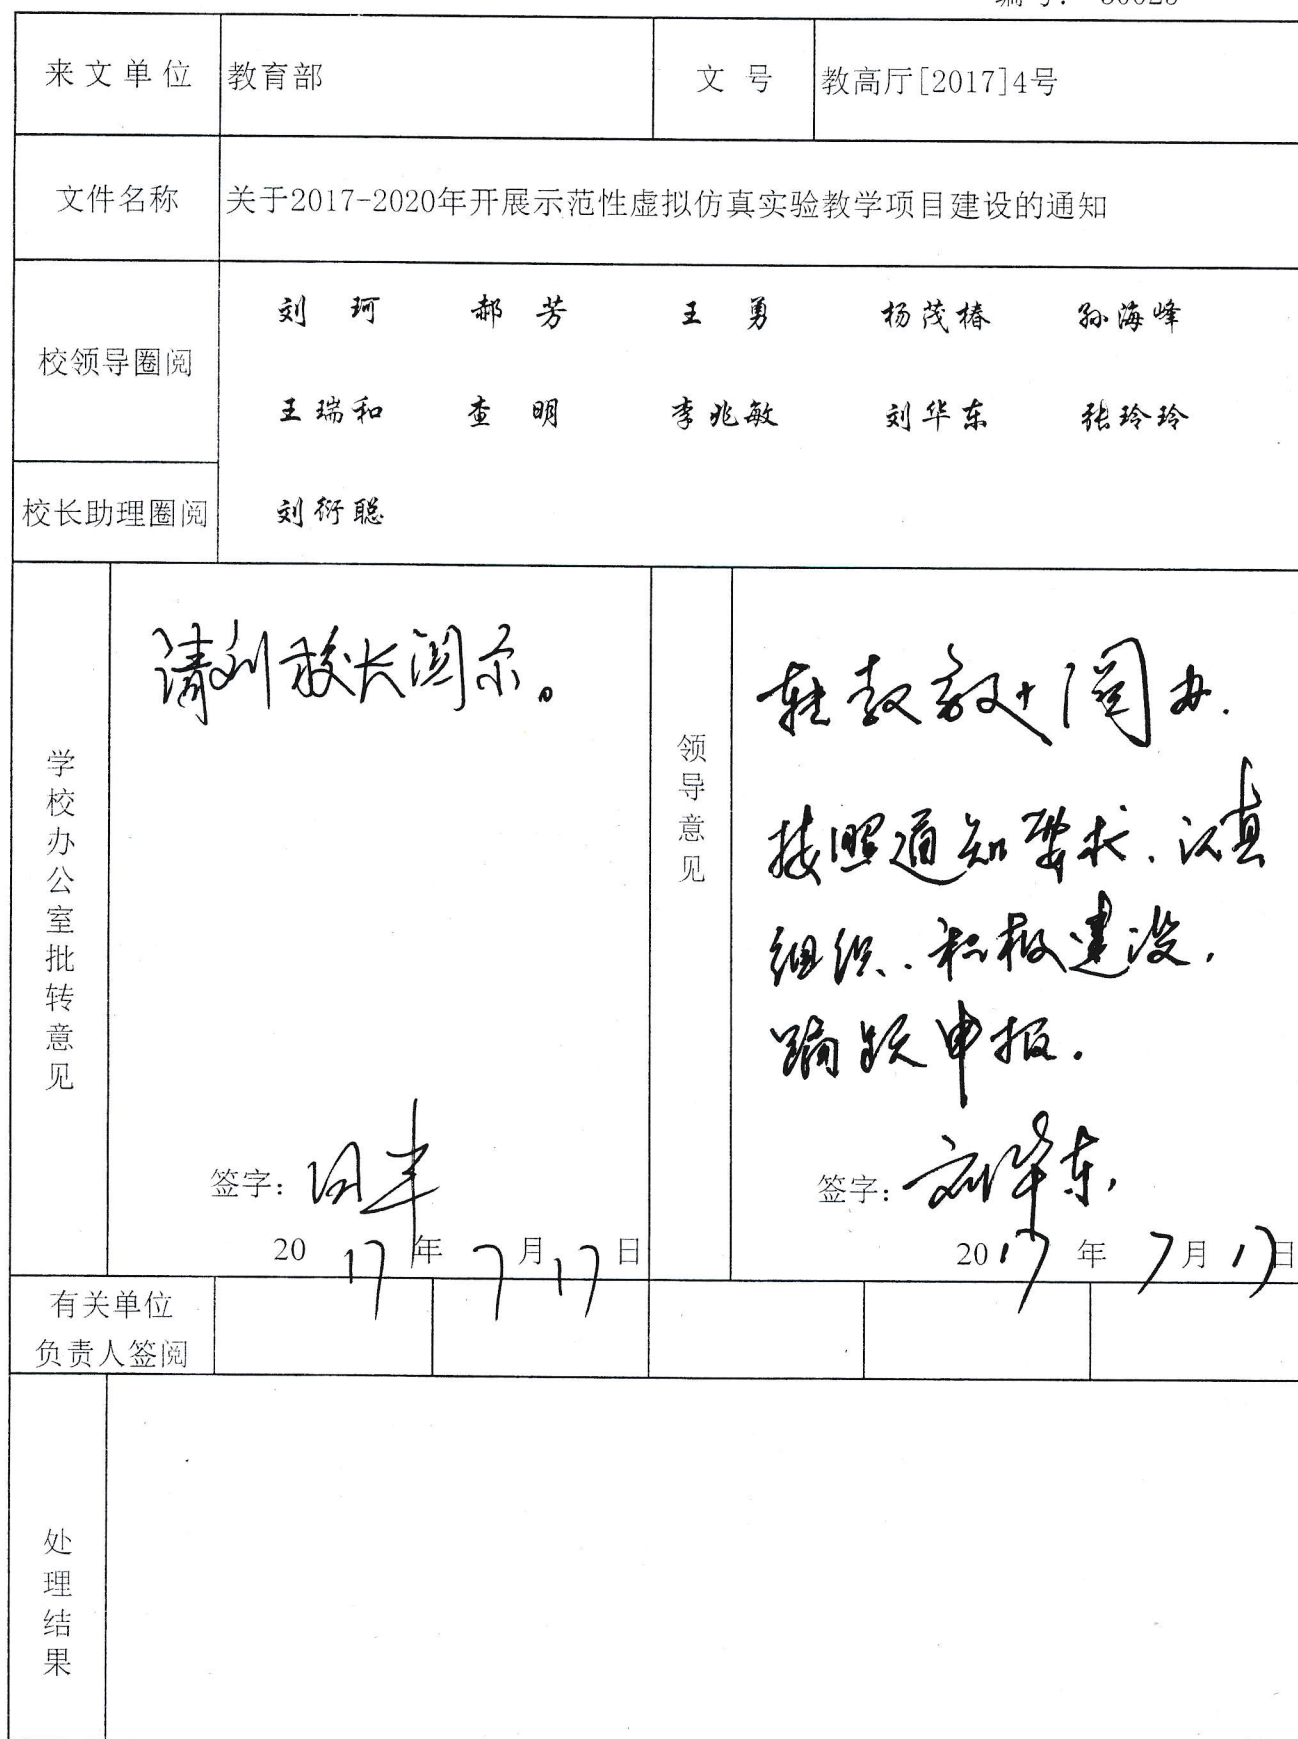 来文单位 教育部 文号 教高厅[2017]4号
文件名称 关于2017-2020年开展示范性虚拟仿真实验教学项目建设的通知
校领导圈阅
刘珂 郝芳 王勇 杨茂椿 孙海峰
王瑞和 查明 李兆敏 刘华东 张玲玲
校长助理圈阅 刘衍聪
学校办公室批转意见
请刘校长阅示。
签字:
2017年7月17日
领导意见
阅办.
按照通知要求、认真
组织、积极建设,
踊跃申报.
签字: 刘华东
2017年7月17日
有关单位
负责人签阅
处理结果